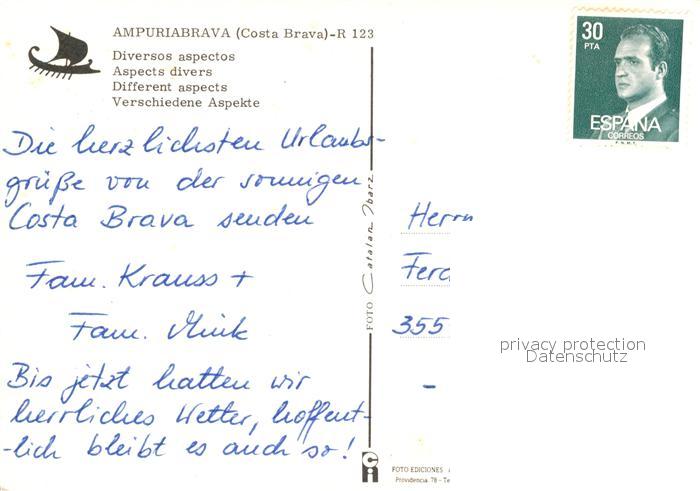 AMPURIABRAVA (Costa Brava)-R 123
Diversos aspectos
Aspects divers
Different aspects
Verschiedene Aspekte
30
PTA
ESPAÑA
CORREOS
F.N.M.T.
Die herzlichsten Urlaubs-
grüße von der sonnigen
Costa Brava senden
Fam. Krauss +
Fam. Mink
Bis jetzt hatten wir
herrliches Wetter, hoffent-
-lich bleibt es auch so!
FOTO Catalan Ibarz
Herrn
355
-
privacy protection
Datenschutz
ci
FOTO EDICIONES
Providencia, 78 - Te